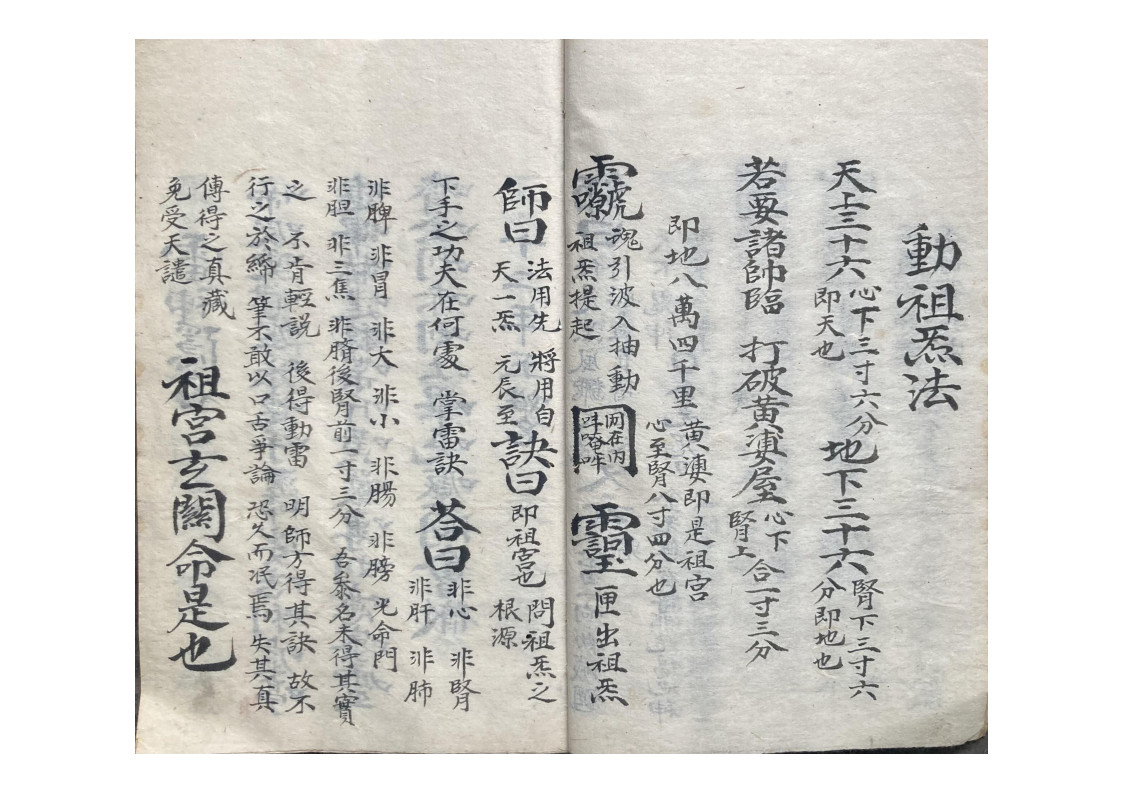 動祖炁法
天上三十六心下三寸六分即天也地下三十六腎下三寸六分即地也
若要諸帥臨 打破黃婆屋心下腎上合一寸三分
即地八萬四千里黃婆即是祖宮心至腎八寸四分也
魂引波入抽動祖炁提起 匣出祖炁
師曰法用先天一炁 將用自元辰至訣曰即祖宮也 問祖炁之根源
下手之功夫在何處 掌雷訣 答曰非心 非腎非肝 非肺
非脾 非胃 非大 非小 非腸 非膀 光命門
非胆 非三焦 非臍後腎前一寸三分 吾叅名未得其實
之 不肯輕説 後得動雷 明師方得其訣 故不
行之於締 筆不敢以口舌爭論 恐久而泯焉 失其真
傳得之真藏
免受天譴 祖宮玄關命是也